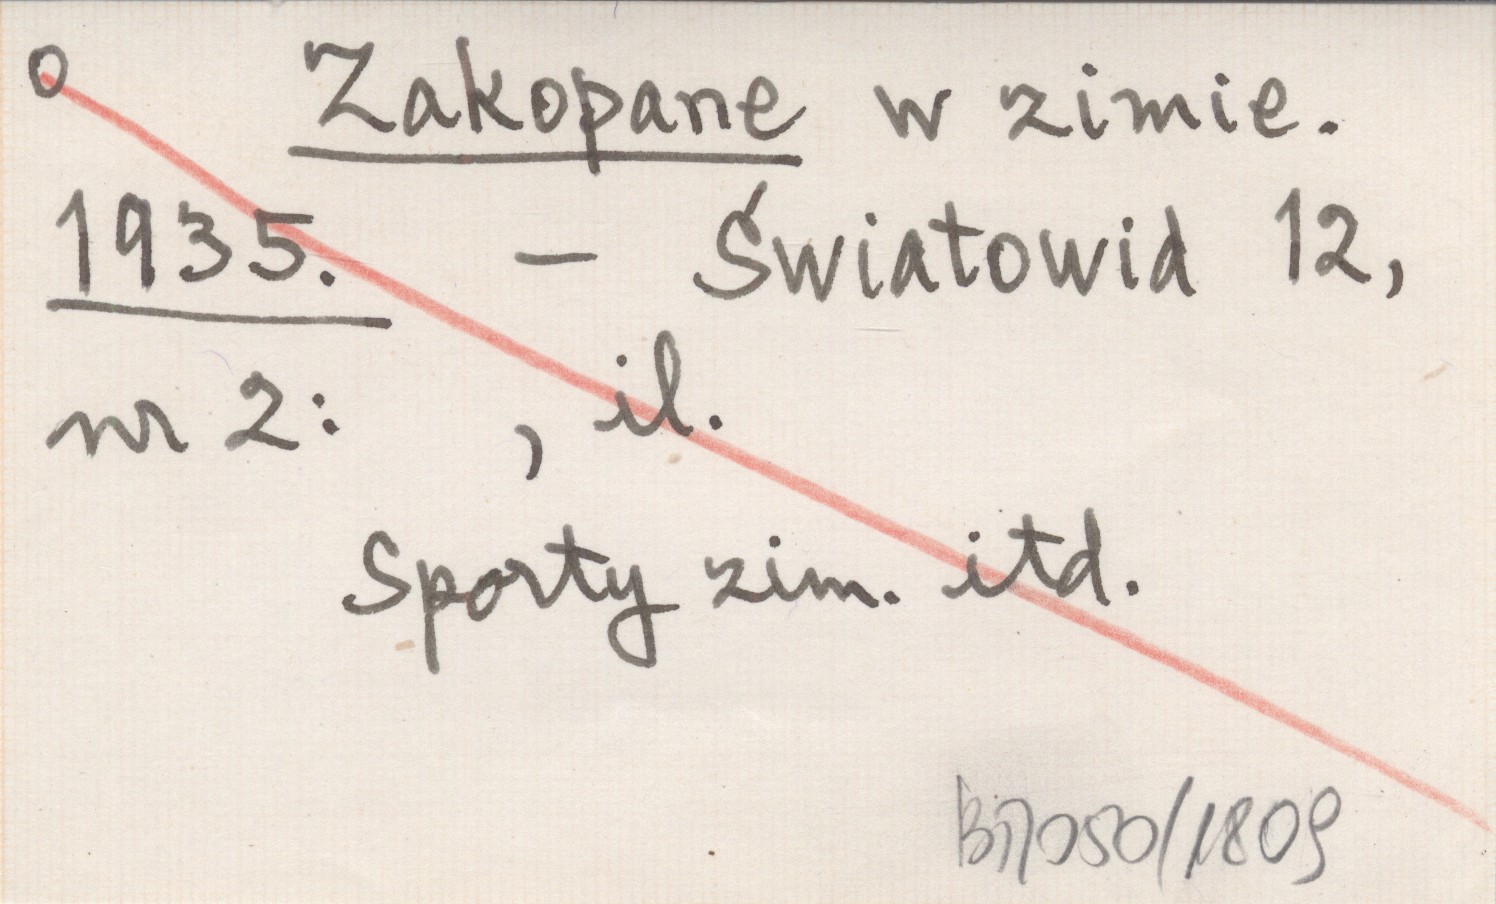 o Zakopane w zimie.
1935. – Światowid 12,
nr 2: , il.
Sporty zim. itd.